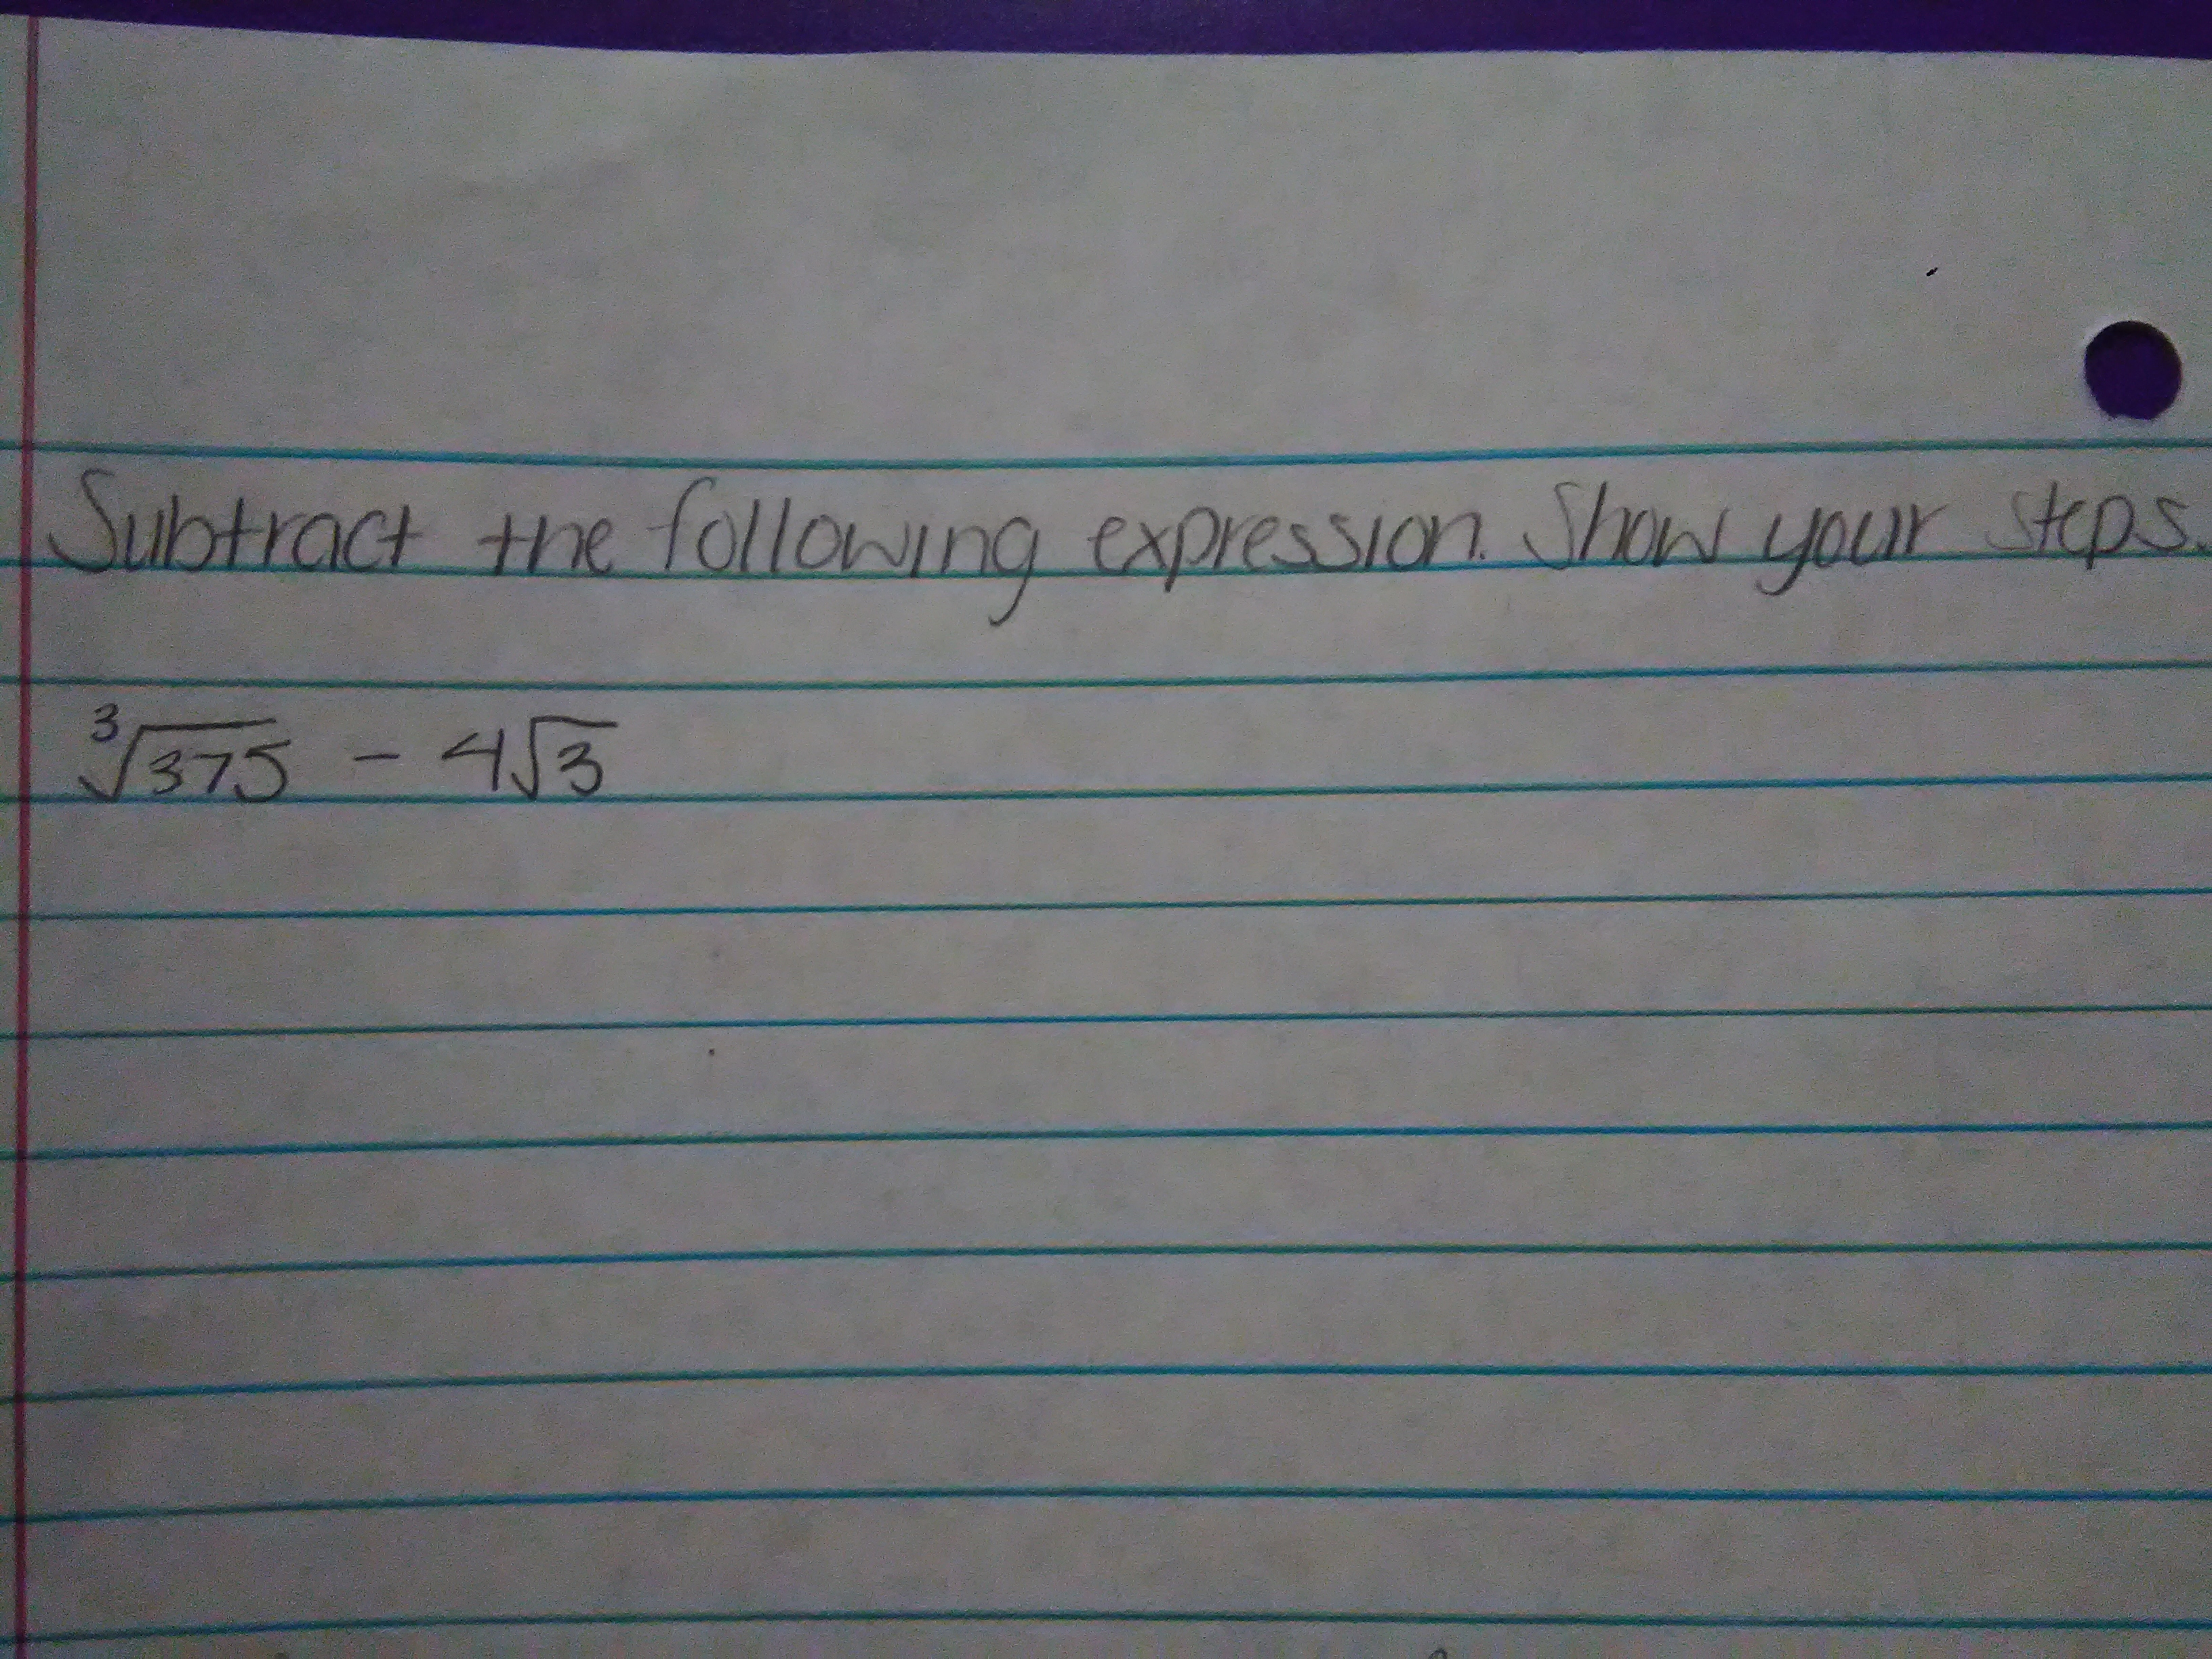 Subtract the following expression. Show your steps.
∛375 - 4√3